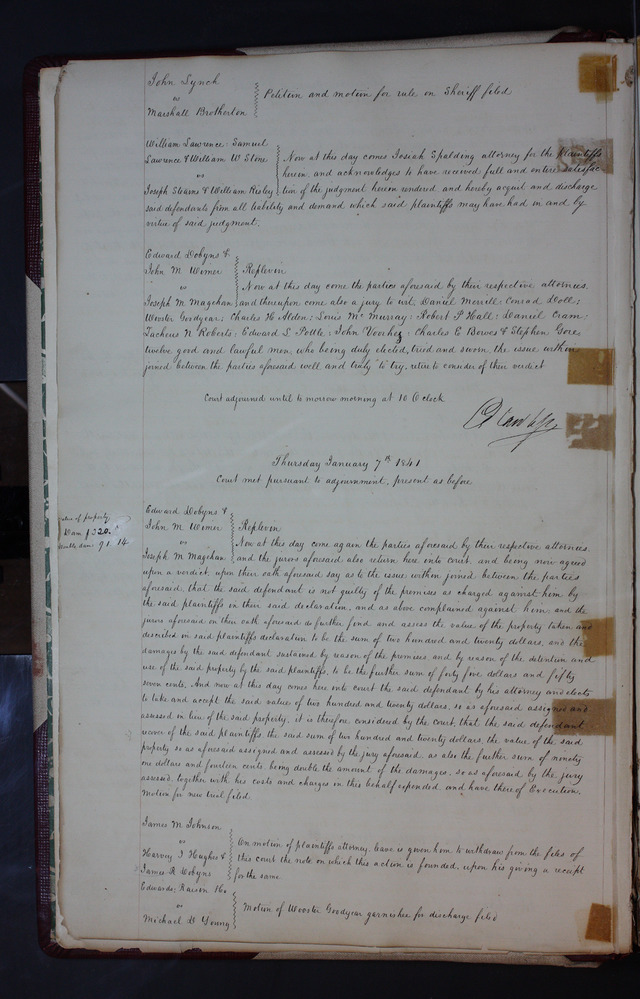 John Lynch
vs
Marshall Brotherton
Petition and motion for rule on Sheriff filed
William Lawrence: Samuel
Lawrence & William W Stone
vs
Joseph Stearns & William Risley
Now at this day comes Josiah Spalding attorney for the Plaintiffs
herein, and acknowledges to have received full and entire satisfac
tion of the judgment herein rendered and hereby acquit and discharge
said defendants from all liability and demand which said plaintiffs may have had in and by
virtue of said judgment.
Edward Dobyns &
John M. Wimer
vs
Joseph M Magehan
Replevin
Now at this day come the parties aforesaid by their respective attornies,
and thereupon come also a jury to wit, Daniel Merrill: Conrad Doll;
Wooster Goodyear; Charles H Alden: Louis Mc Murray: Robert P Hall: Daniel Cram:
Zacheus N Roberts: Edward S. Pottle: John Voorhez: Charles E Bowes & Stephen Gore
twelve good and lawful men, who being duly elected, tried and sworn, the issue within
joined between the parties aforesaid well and truly to try, retire to consider of their verdict
Court adjourned until to morrow morning at 10 O'clock
Thursday January 7th 1841
Court met pursuant to adjournment, present as before
Value of property
Dam $220.
Double dam 91.14
Edward Dobyns &
John M. Wimer
vs
Joseph M Magehan
Replevin
Now at this day come again the parties aforesaid by their respective attornies
and the jurors aforesaid also return here into court, and being now agreed
upon a verdict, upon their oath aforesaid say as to the issue within joined between the parties
aforesaid, that the said defendant is not guilty of the premises as charged against him by
the said plaintiffs in their said declaration, and as above complained against him, and the
jurors aforesaid on their oath aforesaid do further find and assess the value of the property taken and
described in said plaintiffs declaration to be the sum of two hundred and twenty dollars, and the
damages by the said defendant sustained by reason of the premises and by reason of the detention and
use of the said property by the said plaintiffs, to be the further sum of forty five dollars and fifty
seven cents. And now at this day comes here into court the said defendant by his attorney and elects
to take and accept the said value of two hundred and twenty dollars, so as aforesaid assigned and
assessed in lieu of the said property, it is therefore considered by the court, that the said defendant
recover of the said plaintiffs the said sum of two hundred and twenty dollars, the value of the said
property so as aforesaid assigned and assessed by the jury aforesaid, as also the further sum of ninety
one dollars and fourteen cents being double the amount of the damages, so as aforesaid by the jury
assessed, together with his costs and charges in this behalf expended, and have thereof Execution.
Motion for new trial filed.
James M Johnson
vs
Harvey I Hughes &
James R Dobyns
On motion of plaintiffs attorney, leave is given him to withdraw from the files of
this court the note on which this action is founded, upon his giving a receipt
for the same
Edwards, Raison &Co
vs
Michael D Young
Motion of Wooster Goodyear garnishee for discharge filed